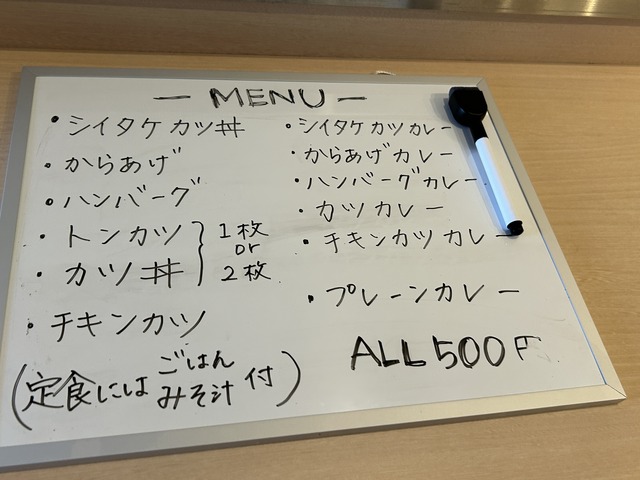 — MENU —
・シイタケカツ丼
・からあげ
・ハンバーグ
・トンカツ
・カツ丼
1枚
or
2枚
・チキンカツ
(定食には ごはん みそ汁 付)
・シイタケカツカレー
・からあげカレー
・ハンバーグカレー
・カツカレー
・チキンカツカレー
・プレーンカレー
ALL 500円